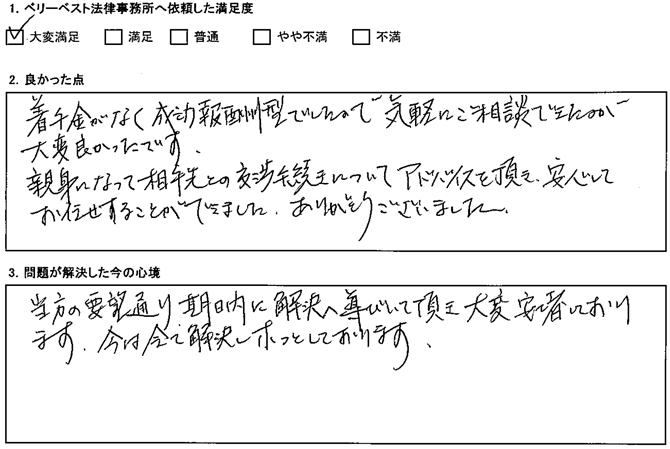 1. ベリーベスト法律事務所へ依頼した満足度
大変満足 満足 普通 やや不満 不満
2. 良かった点
着手金がなく成功報酬型でしたので気軽にご相談できたのが
大変良かったです。
親身になって相手先との交渉手続きについてアドバイスを頂き、安心して
お任せすることができました。ありがとうございました。
3. 問題が解決した今の心境
当方の要望通り期日内に解決へ導びいて頂き大変安堵しております。
ます。今は全て解決しホッとしております。